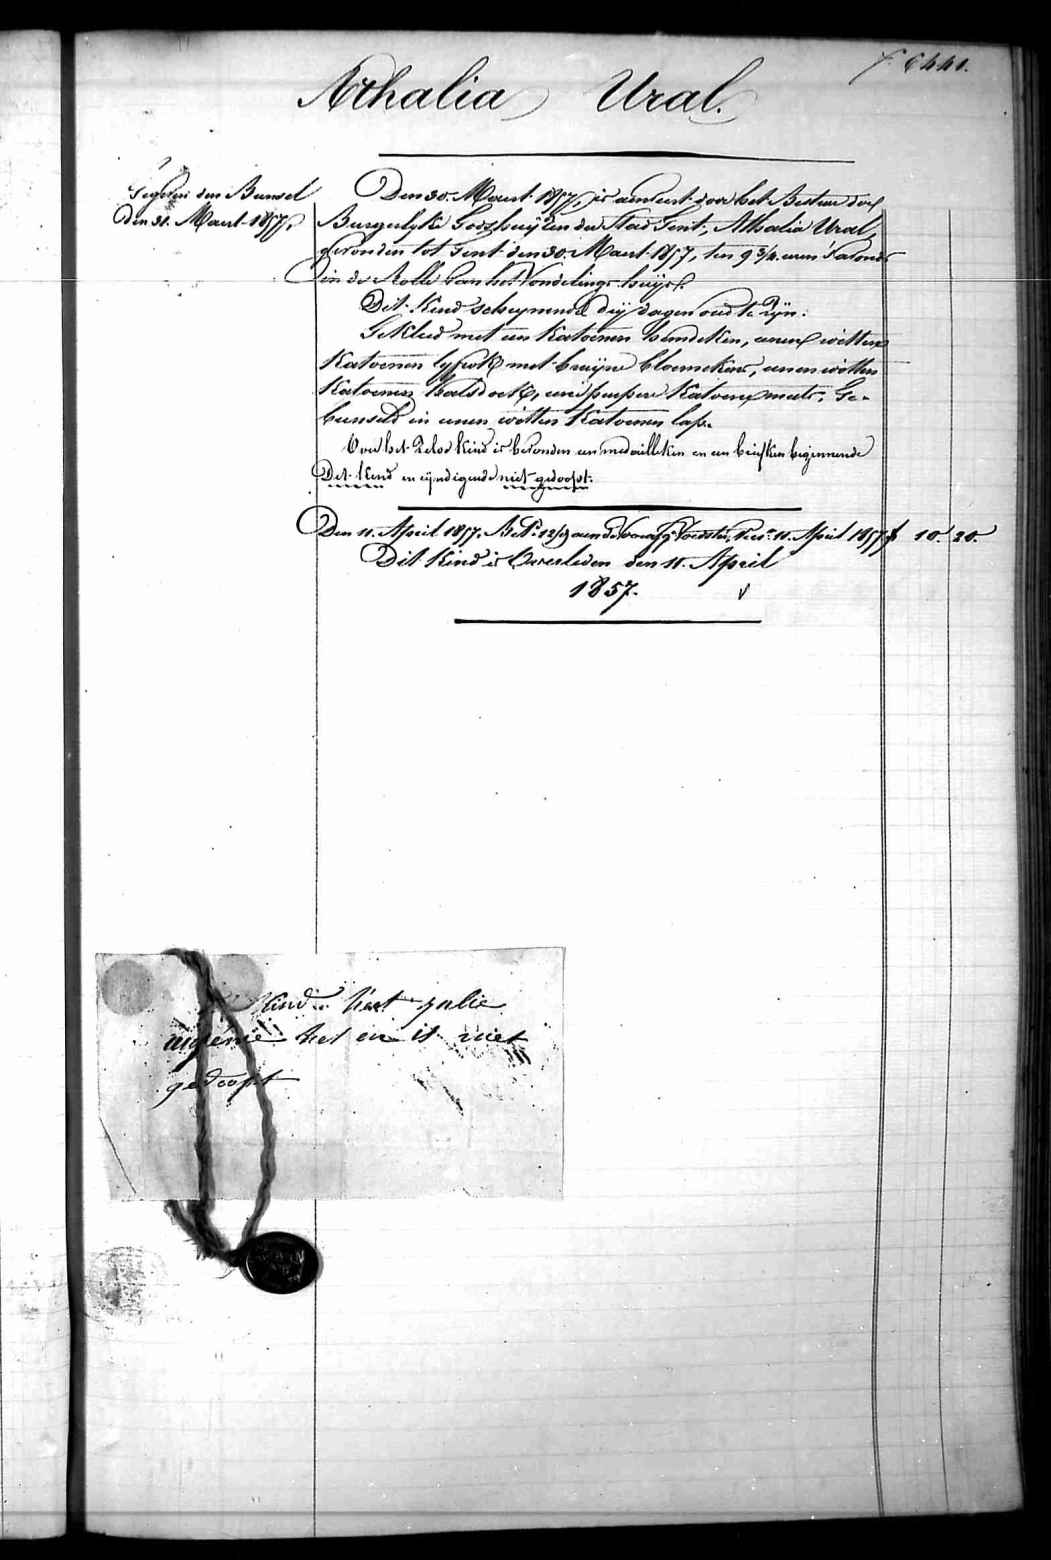 f° 6441.
Athalia Ural.
Gegeven den Bunsel
den 31. Maart 1857.
Den 30. Maart 1857, is aenveert door het Bestuer der
Burgerlyke Godshuyzen der Stad Gent, Athalia Ural,
gevonden tot Gent den 30. Maart 1857, ten 9 3/4 uren 's avonds
in de Rolle van het Vondelings huys.
Dit Kind schynende dry dagen oud te zyn.
Gekleed met een Katoenen hemdeken, eenen witten
Katoenen lyfrok met bruyne bloemekens, eenen witten
Katoenen halsdoek, eene purpere Katoene muts, Ge-
bunseld in eenen witten Katoenen lap.
Over het zelve Kind is bevonden een medailleken en een briefken beginnende
Dit Kind en eyndigende niet gedoopt.
Den 11. April 1857. aen de Voedster, 11. April 1857 f 10. 20.
Dit Kind is Overleden den 11. April
1857.
Kind hiet julie
eugenie het en is niet
gedoopt